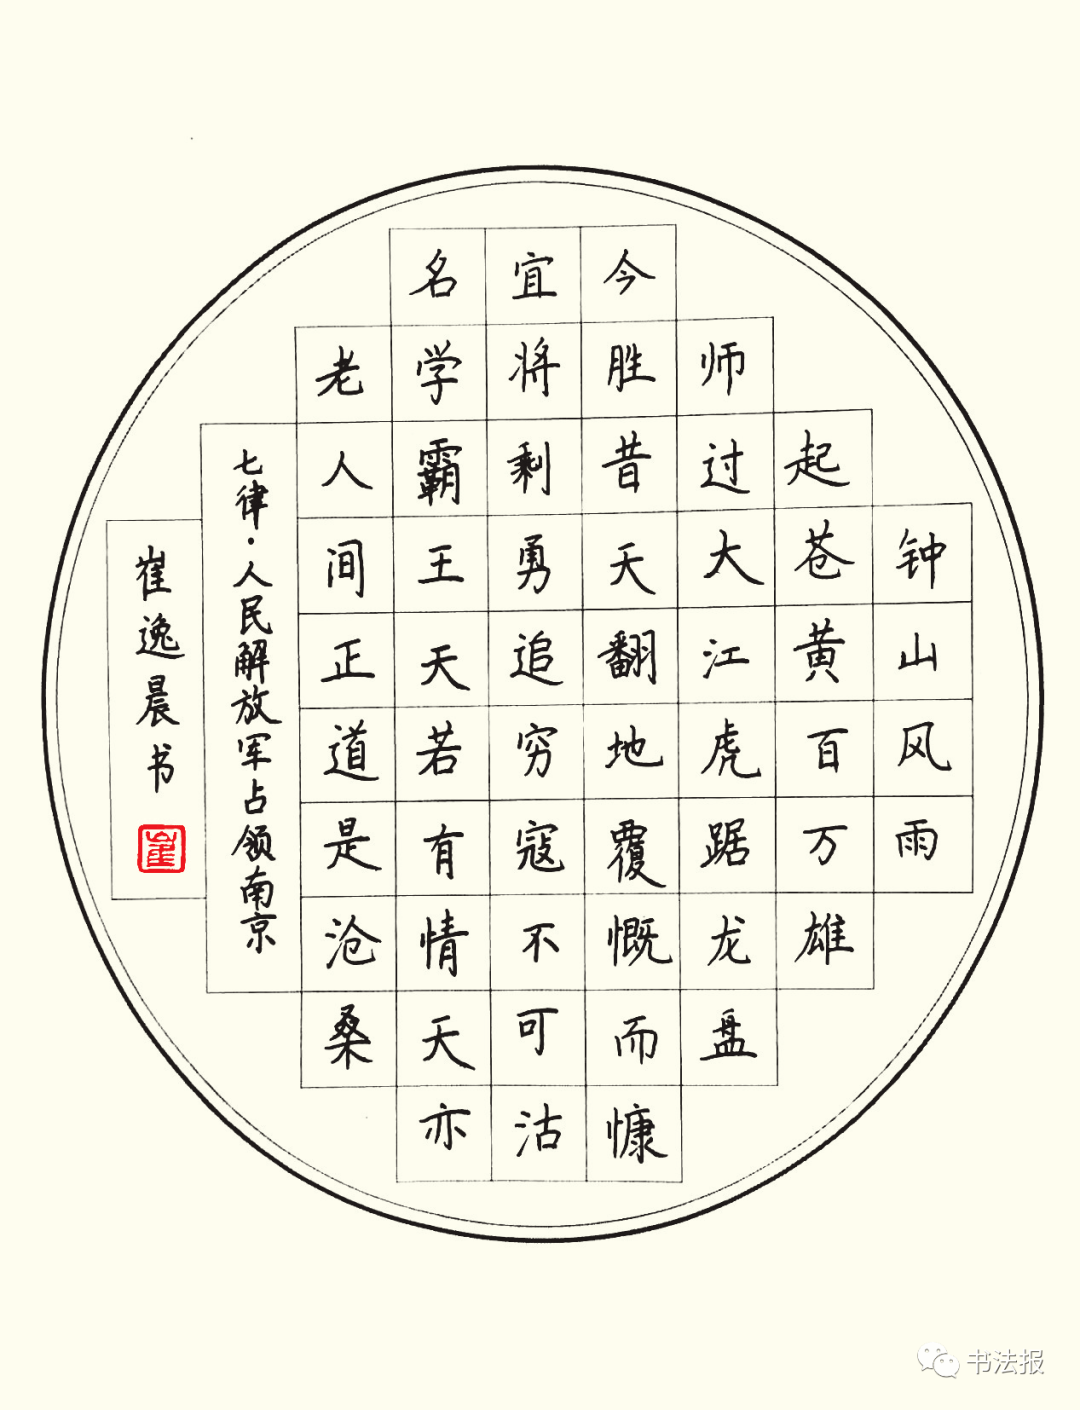 钟山风雨
起苍黄百万雄
师过大江虎踞龙盘
今胜昔天翻地覆慨而慷
宜将剩勇追穷寇不可沽
名学霸王天若有情天亦
老人间正道是沧桑
七律·人民解放军占领南京
崔逸晨书
崔
书法报